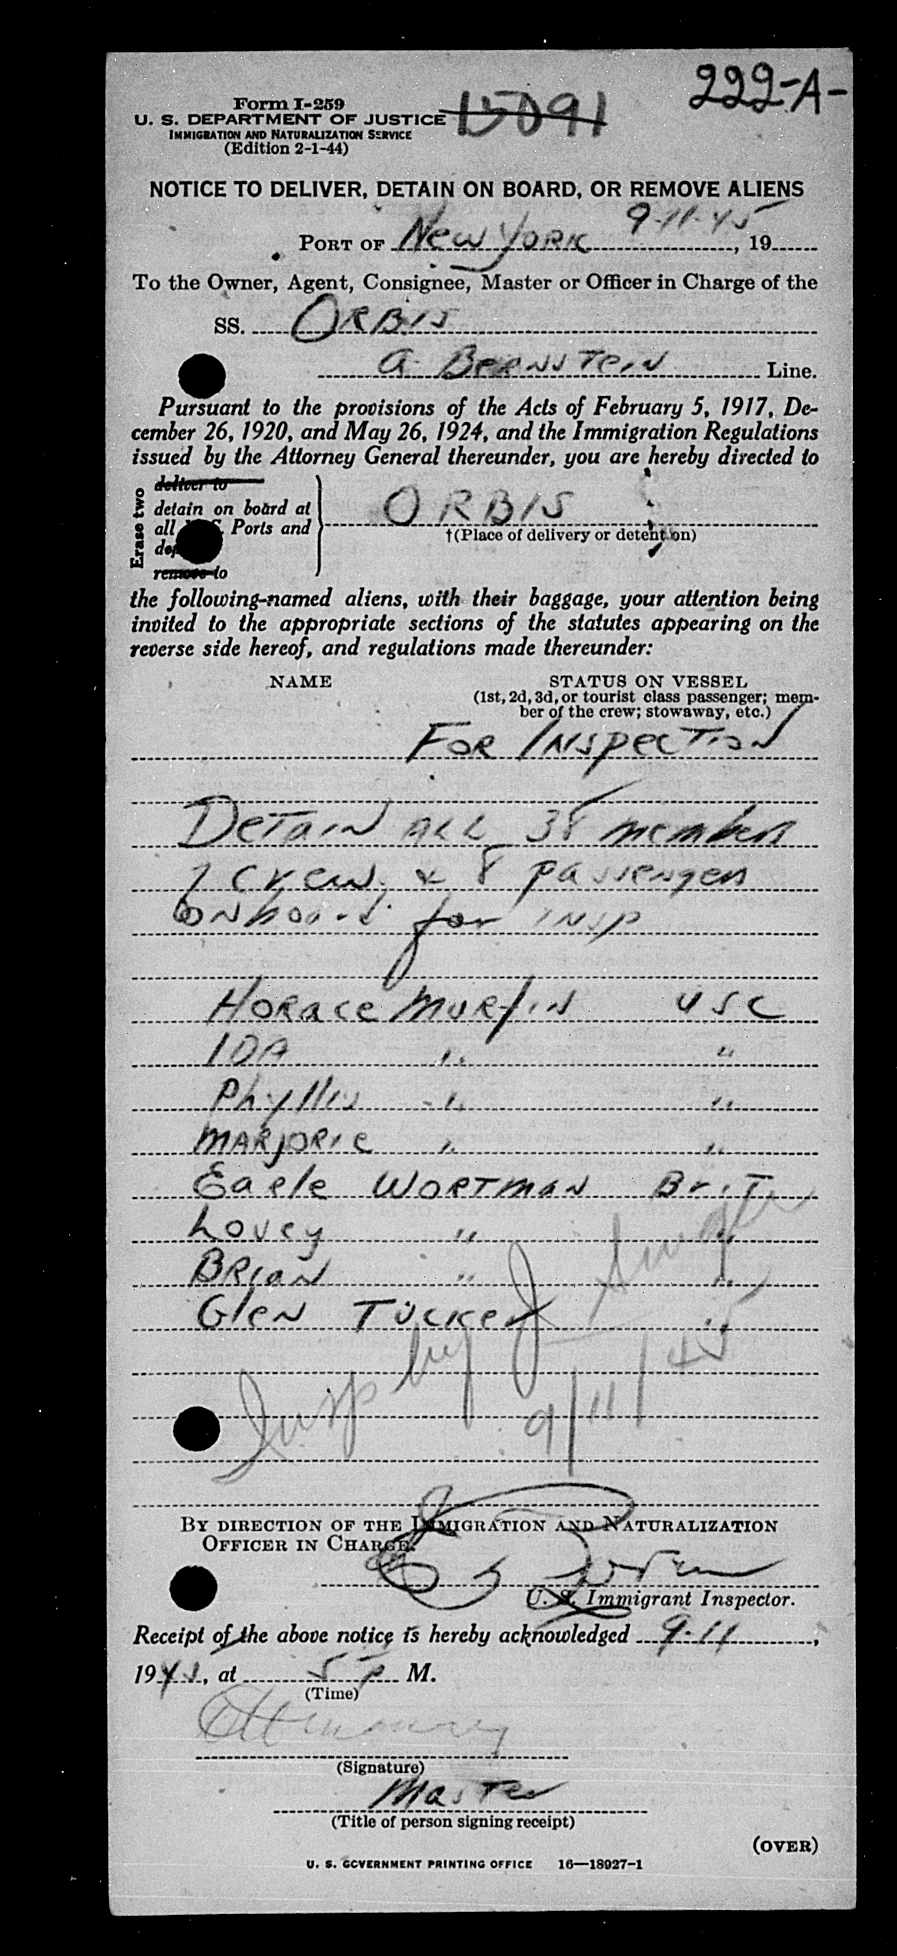 222-A-
Form I-259
U. S. DEPARTMENT OF JUSTICE 15091
IMMIGRATION AND NATURALIZATION SERVICE
(Edition 2-1-44)
NOTICE TO DELIVER, DETAIN ON BOARD, OR REMOVE ALIENS
PORT OF New York 9-11-45, 19
To the Owner, Agent, Consignee, Master or Officer in Charge of the
SS. ORBIS
A Bernstein Line.
Pursuant to the provisions of the Acts of February 5, 1917, De-
cember 26, 1920, and May 26, 1924, and the Immigration Regulations
issued by the Attorney General thereunder, you are hereby directed to
Erase two
deliver to
detain on board at
all Ports and
remove to
ORBIS
†(Place of delivery or detention)
the following-named aliens, with their baggage, your attention being
invited to the appropriate sections of the statutes appearing on the
reverse side hereof, and regulations made thereunder:
NAME STATUS ON VESSEL
(1st, 2d, 3d, or tourist class passenger; mem-
ber of the crew; stowaway, etc.)
For Inspection
Detain all 38 members
crew & 8 passengers
onboard for insp
Horace Murfin USC
IDA " "
Phyllis " "
Marjorie " "
Earle Wortman Brit
Lovey " "
Brian " "
Glen Tucker "
Insp by J
9/11/45
BY DIRECTION OF THE IMMIGRATION AND NATURALIZATION
OFFICER IN CHARGE.
U. S. Immigrant Inspector.
Receipt of the above notice is hereby acknowledged 9-11,
1945, at 5 P M.
(Time)
(Signature)
Master
(Title of person signing receipt)
(OVER)
U. S. GOVERNMENT PRINTING OFFICE 16—18927-1